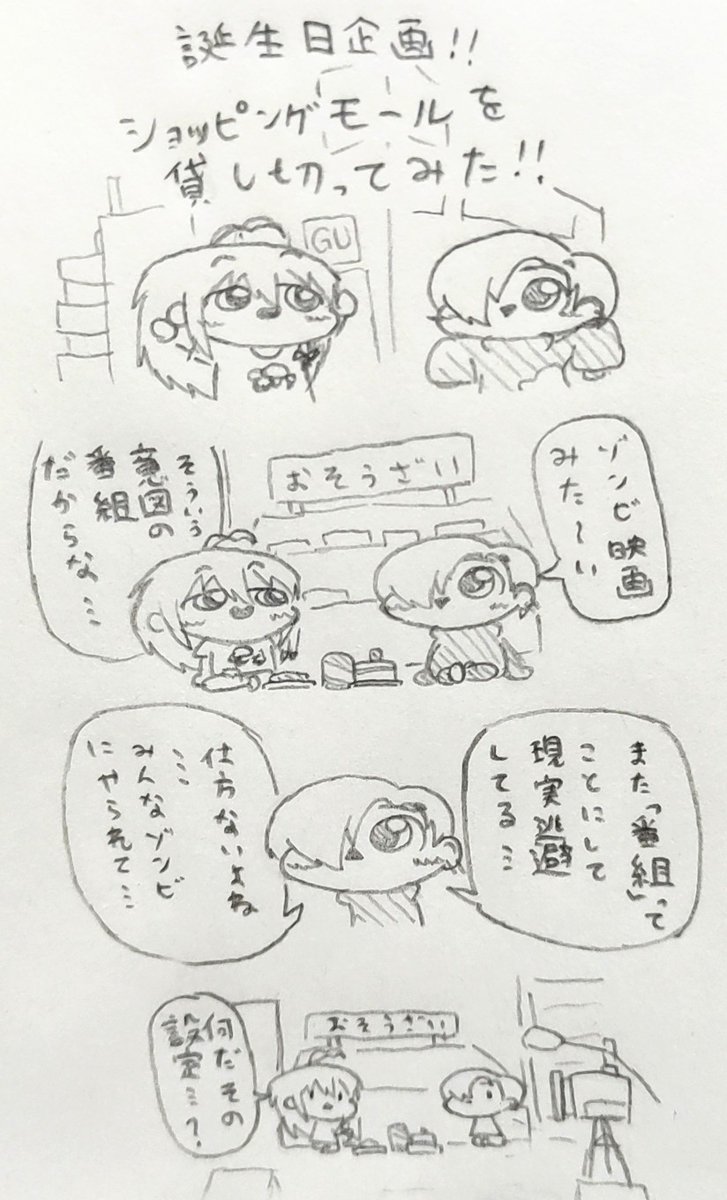 誕生日企画!!
ショッピングモールを
貸し切ってみた!!
GU
ゾンビ映画
みた〜い
おそうざい
そういう
意図の
番組
だからな…
また「番組」って
ことにして
現実逃避
してる…
仕方ないよね
…
みんなゾンビ
にやられて…
おそうざい
何だその
設定…?